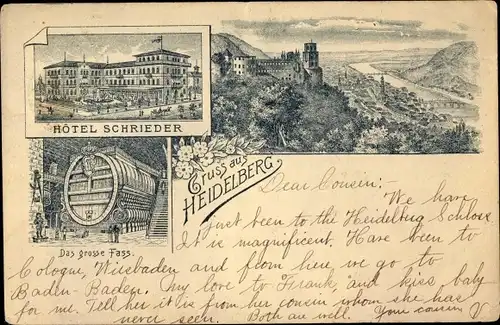 HÔTEL SCHRIEDER
Gruss aus
HEIDELBERG
Das grosse Fass.
Dear Cousin:-
We have
just been to the Heidelberg Schloss
It is magnificent. Have been to
Cologne, Wiesbaden and from here we go to
Baden-Baden. My love to Frank and kiss baby
for me. Tell her it is from her cousin whom she has
never seen. Both are well. Your cousin V